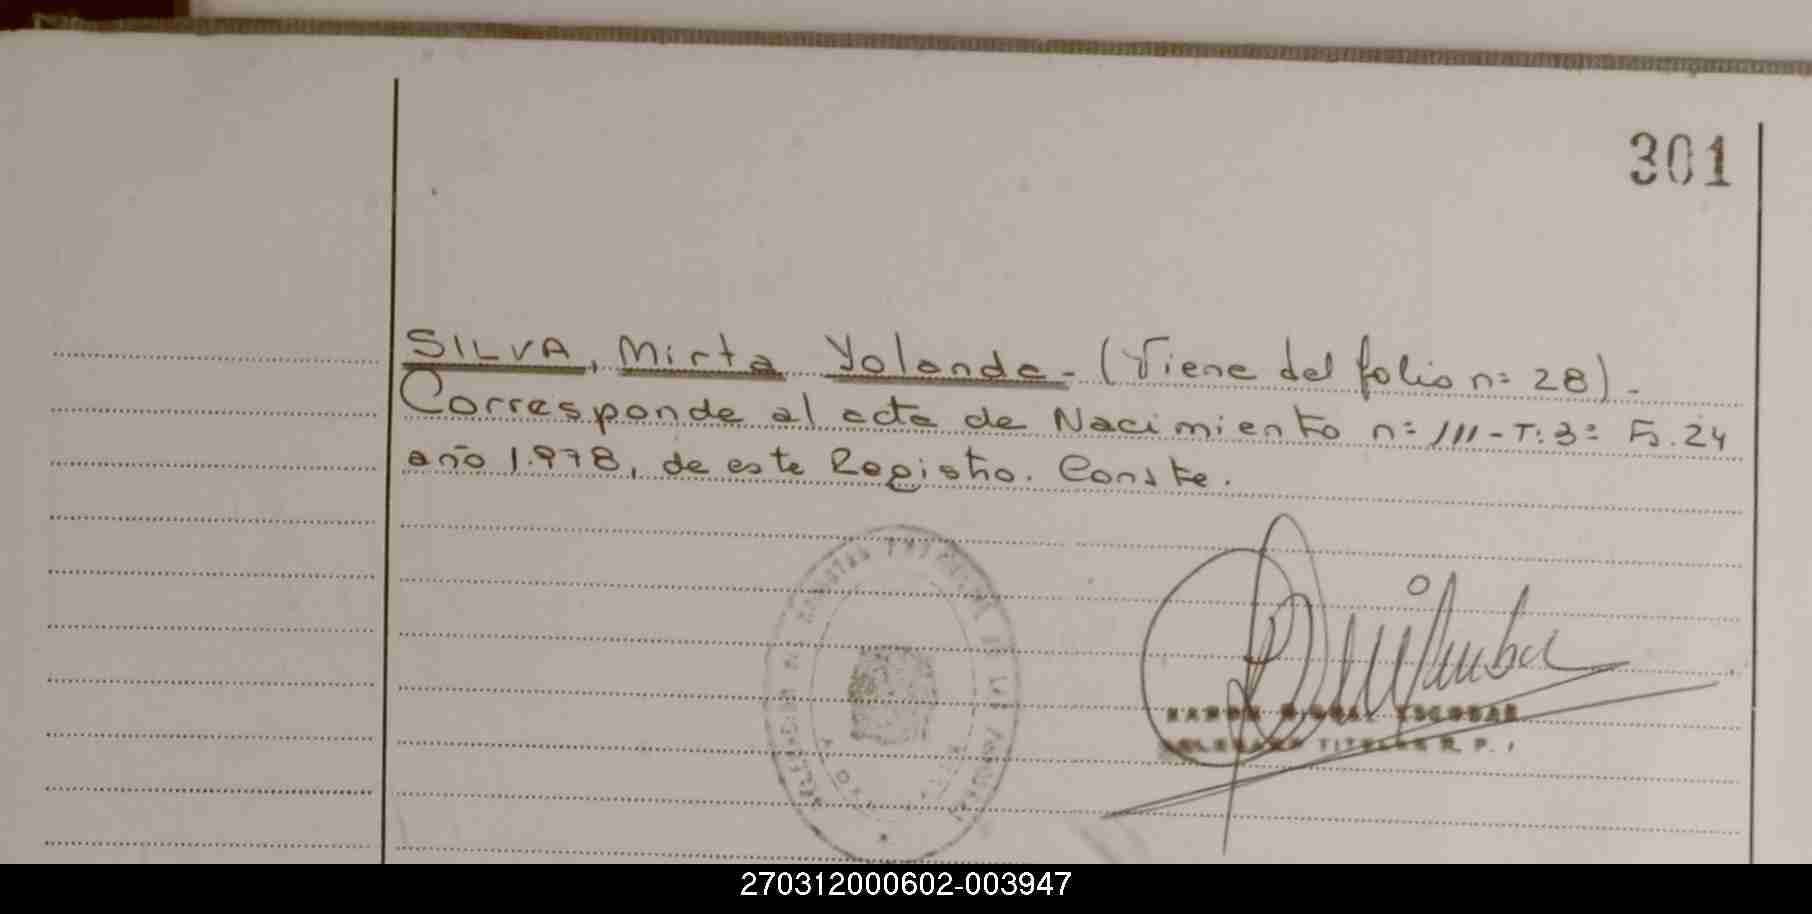 301
SILVA, Mirta Yolanda - (Viene del folio n= 28) -
Corresponde al acta de Nacimiento n= 111 - T: 3= Fº. 24
año 1.978, de este Registro. Conste.
ESCOBAR
TITULAR R. P.
270312000602-003947